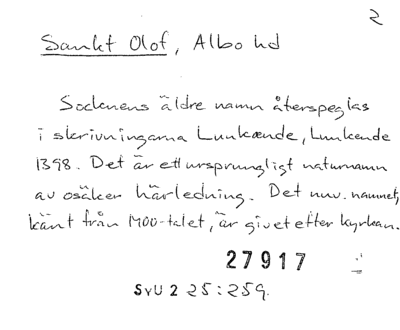 2
Sankt Olof, Albo hd
Socknens äldre namn återspeglas
i skrivningarna Lunkænde, Lunkende
1398. Det är ett ursprungligt naturnamn
av osäker härledning. Det nuv. namnet,
känt från 1400-talet, är givet efter kyrkan.
27917
SvU 2 25:259.